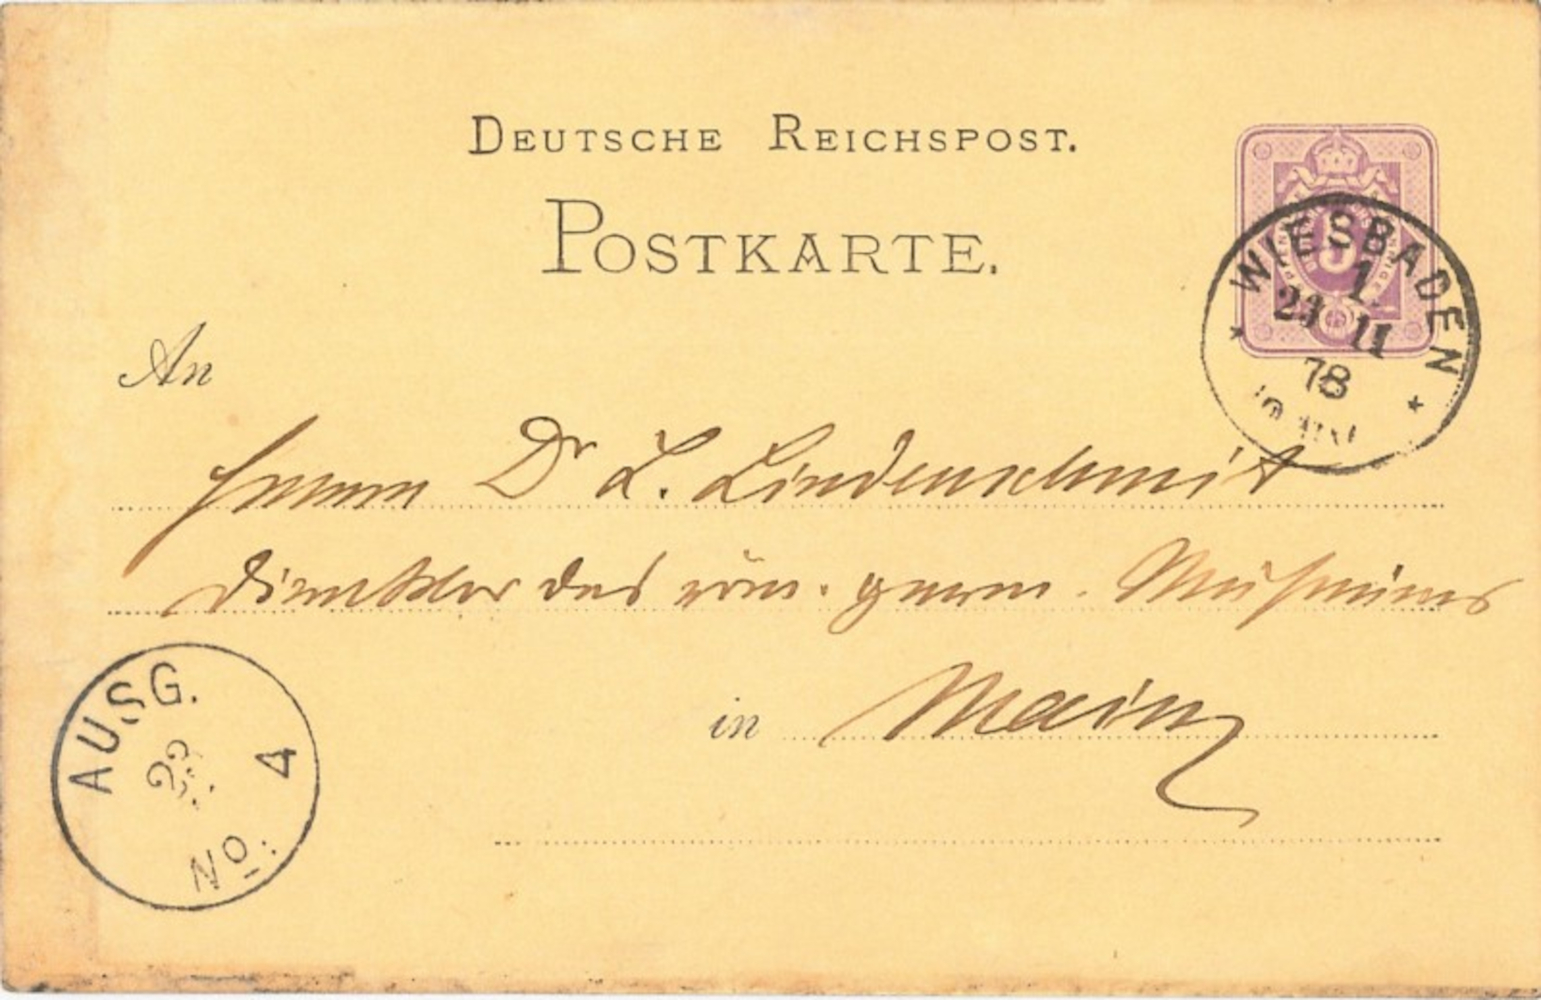 DEUTSCHE REICHSPOST.
POSTKARTE.
WIESBADEN
1.
11
78
An
Herrn Dr L. Lindenschmit
Direktor des röm. germ. Museums
in Mainz
AUSG.
4
No: